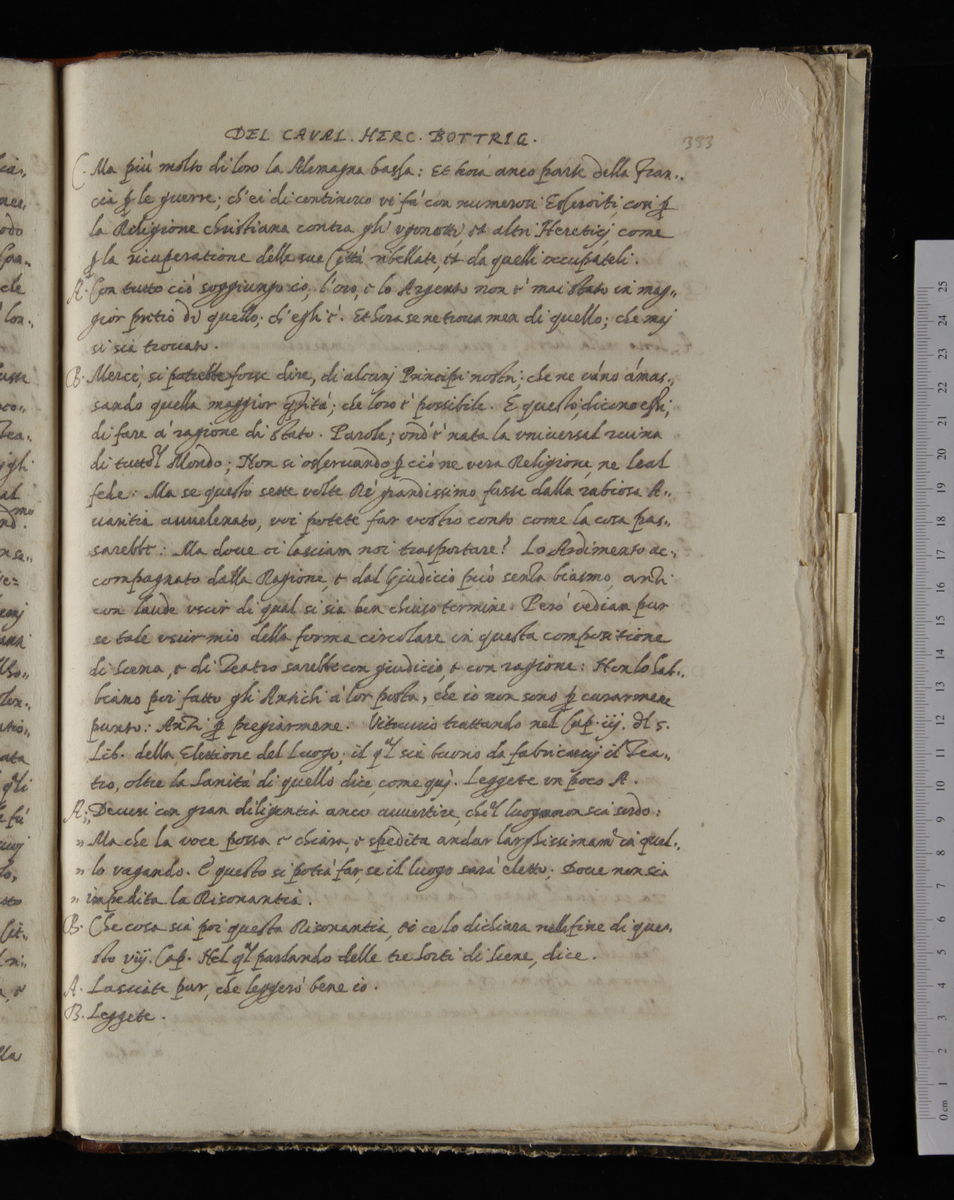 DEL CAVAL. HERC. BOTTRIG. 333
C. Ma più molto di loro la Alemagna bassa: Et hora anco parte della Fran„
cia ꝑ le guerre; ch'ei di continovo vi fà con numerosi Esserciti, con ꝑ
la Religione christiana contra gli Vgonotti, et altri Heretici, come
ꝑ la ricuperatione delle sue Città ribellate, et da quelli occupateli.
A. Con tutto ciò soggiungo io, l'oro, e lo Argento non è mai stato in mag„
gior pretio di quello; ch'egli è. Et hora se ne trova men di quello; che maj
si sia trovato.
B. Mercè, si potrebbe forse dire, di alcunj Principi nostri; che ne vano amas„
sando quella maggior qtità; che loro è possibile. E questo dicono essi,
di fare à ragione di stato. Parola; ond'è nata la vniversal ruina
di tutto'l Mondo; Non si osservando ꝑ ciò ne vera Religione, ne leal
fede: Ma se questo sette volte Rè grandissimo fusse dalla rabiosa A„
varitia avvelenato, voi potete far vostro conto come la cosa pas„
sarebbe: Ma dove ci lasciam noi trasportare? Lo Ardimento ac„
compagnato dalla Ragione, e dal Giudicio può senza biasmo, anzi
con laude vscir di qual si sia ben chiuso termine. Però vediam pur
se tale vscir mio della forma circolare in questa compositione
di Scena, e di Teatro sarebbe con giudicio, e con ragione: Non lo hab„
biano poi fatto gli Antichi à lor posta, che io non sono ꝑ curarmene
punto: Anzi ꝑ pregiarmene. Vitruvio trattando nel Cap. iij. dl 5.
Lib. della Elettione del Luogo, il ql sia buono da fabricarvj il Tea„
tro, oltre la Sanità di quello dice, come quj. Leggete vn poco A.
A. „ Devesi con gran diligentia anco avvertire, che'l luogo non sia sordo:
„ Ma che la voce possa e chiara, e spedita andar larghissimamte in quel„
„ lo vagando. E questo si potrà far, se il luogo sarà eletto; Dove non sia
„ impedita la Risonantia.
B. Che cosa sia poi questa Risonantia, ei ce lo dichiara nella fine di que„
sto viij. Cap. Nel ql parlando delle tre sorti di Scene, dice.
A. Lasciate pur, che leggerò bene io.
B. Leggete.